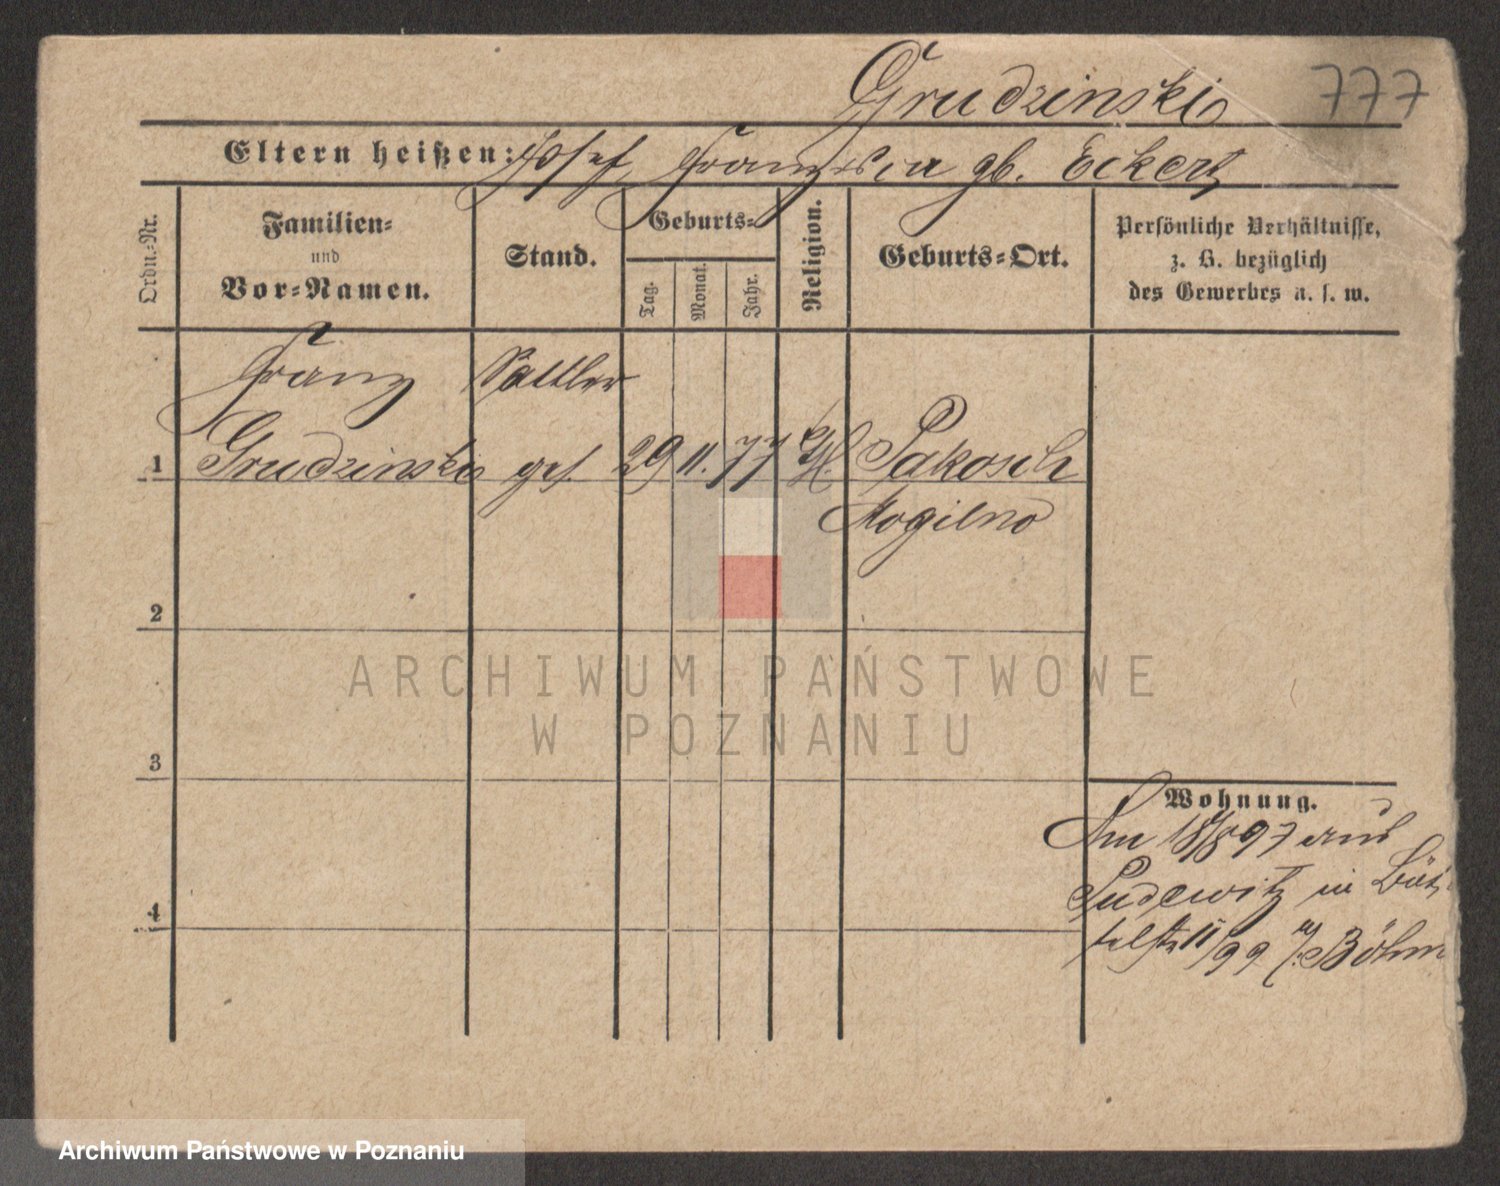 Grudzinski 777
Eltern heißen: Josef, Franziska gb. Eckert
Ordn.-Nr.
Familien-
und
Vor-Namen.
Stand.
Geburts-
Tag.
Monat.
Jahr.
Religion.
Geburts-Ort.
Persönliche Verhältnisse,
z. B. bezüglich
des Gewerbes u. s. w.
Franz Sattler
1 Grudzinski ges. 29 11. 77 Pakosch
Mogilno
2
3
4
Wohnung.
Am 18/8 97 aus
Pudewitz in
11/99 Böhm
ARCHIWUM PAŃSTWOWE
W POZNANIU
Archiwum Państwowe w Poznaniu